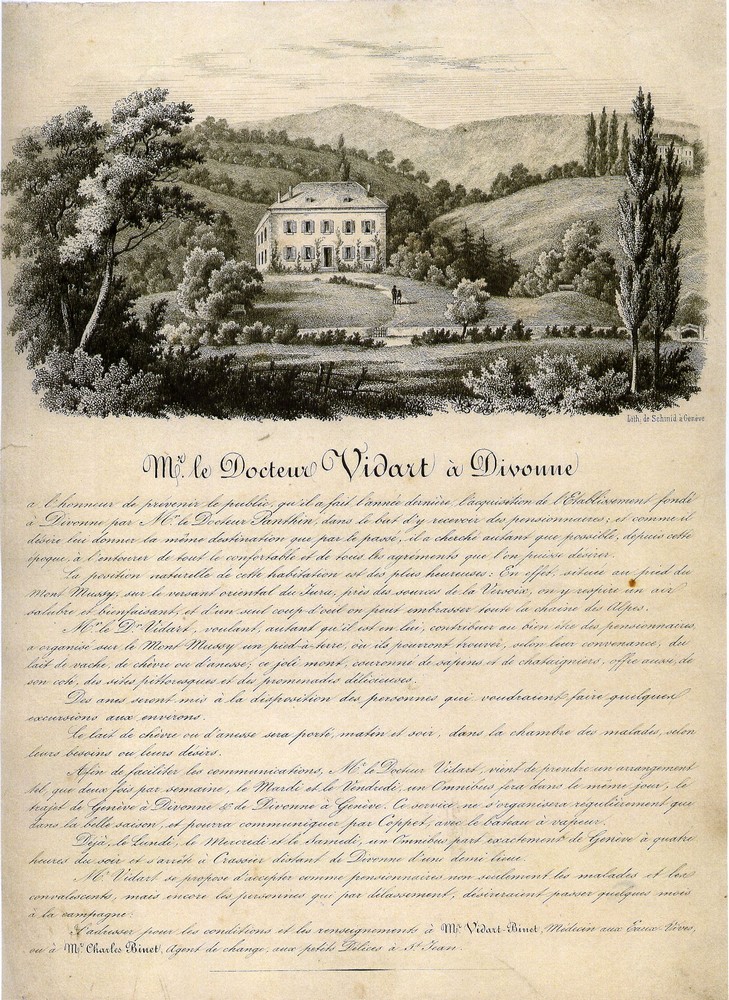 Lith. de Schmid à Genève
Mr. le Docteur Vidart à Divonne
a l'honneur de prévenir le public, qu'il a fait l'année dernière, l'acquisition de l'Etablissement fondé
à Divonne par Mr. le Docteur Panthin, dans le but d'y recevoir des pensionnaires; et comme il
désire lui donner la même destination que par le passé, il a cherché autant que possible, depuis cette
époque, à l'entourer de tout le confortable et de tous les agréments que l'on puisse désirer.
La position naturelle de cette habitation est des plus heureuses: En effet, située au pied du
Mont Mussy, sur le versant oriental du Jura, près des sources de la Versoix, on y respire un air
salubre et bienfaisant, et d'un seul coup d'oeil on peut embrasser toute la chaîne des Alpes.
Mr. le Dr. Vidart, voulant, autant qu'il est en lui, contribuer au bien être des pensionnaires,
a organisé sur le Mont Mussy un pied-à-terre, où ils pourront trouver, selon leur convenance, du
lait de vache, de chèvre ou d'anesse; ce joli mont, couronné de sapins et de chataigniers, offre aussi, de
son coté, des sites pittoresques et des promenades délicieuses.
Des anes seront mis à la disposition des personnes qui voudraient faire quelques
excursions aux environs.
Le lait de chèvre ou d'anesse sera porté, matin et soir, dans la chambre des malades, selon
leurs besoins ou leurs désirs.
Afin de faciliter les communications, Mr. le Docteur Vidart, vient de prendre un arrangement
tel, que deux fois par semaine, le Mardi et le Vendredi, un Omnibus fera dans le même jour, le
trajet de Genève à Divonne & de Divonne à Genève. Ce service ne s'organisera régulièrement que
dans la belle saison, et pourra communiquer par Coppet, avec le bateau à vapeur.
Déjà, le Lundi, le Mercredi et le Samedi, un Omnibus part exactement de Genève à quatre
heures du soir et s'arrête à Crassier distant de Divonne d'une demi lieue.
Mr. Vidart se propose d'accepter comme pensionnaires non seulement les malades et les
convalescents, mais encore les personnes qui par délassement, désireraient passer quelques mois
à la campagne.
S'adresser pour les conditions et les renseignements à Mr. Vidart-Binet, Médecin aux Eaux-Vives,
ou à Mr. Charles Binet, Agent de change, aux petits Délices à St. Jean.